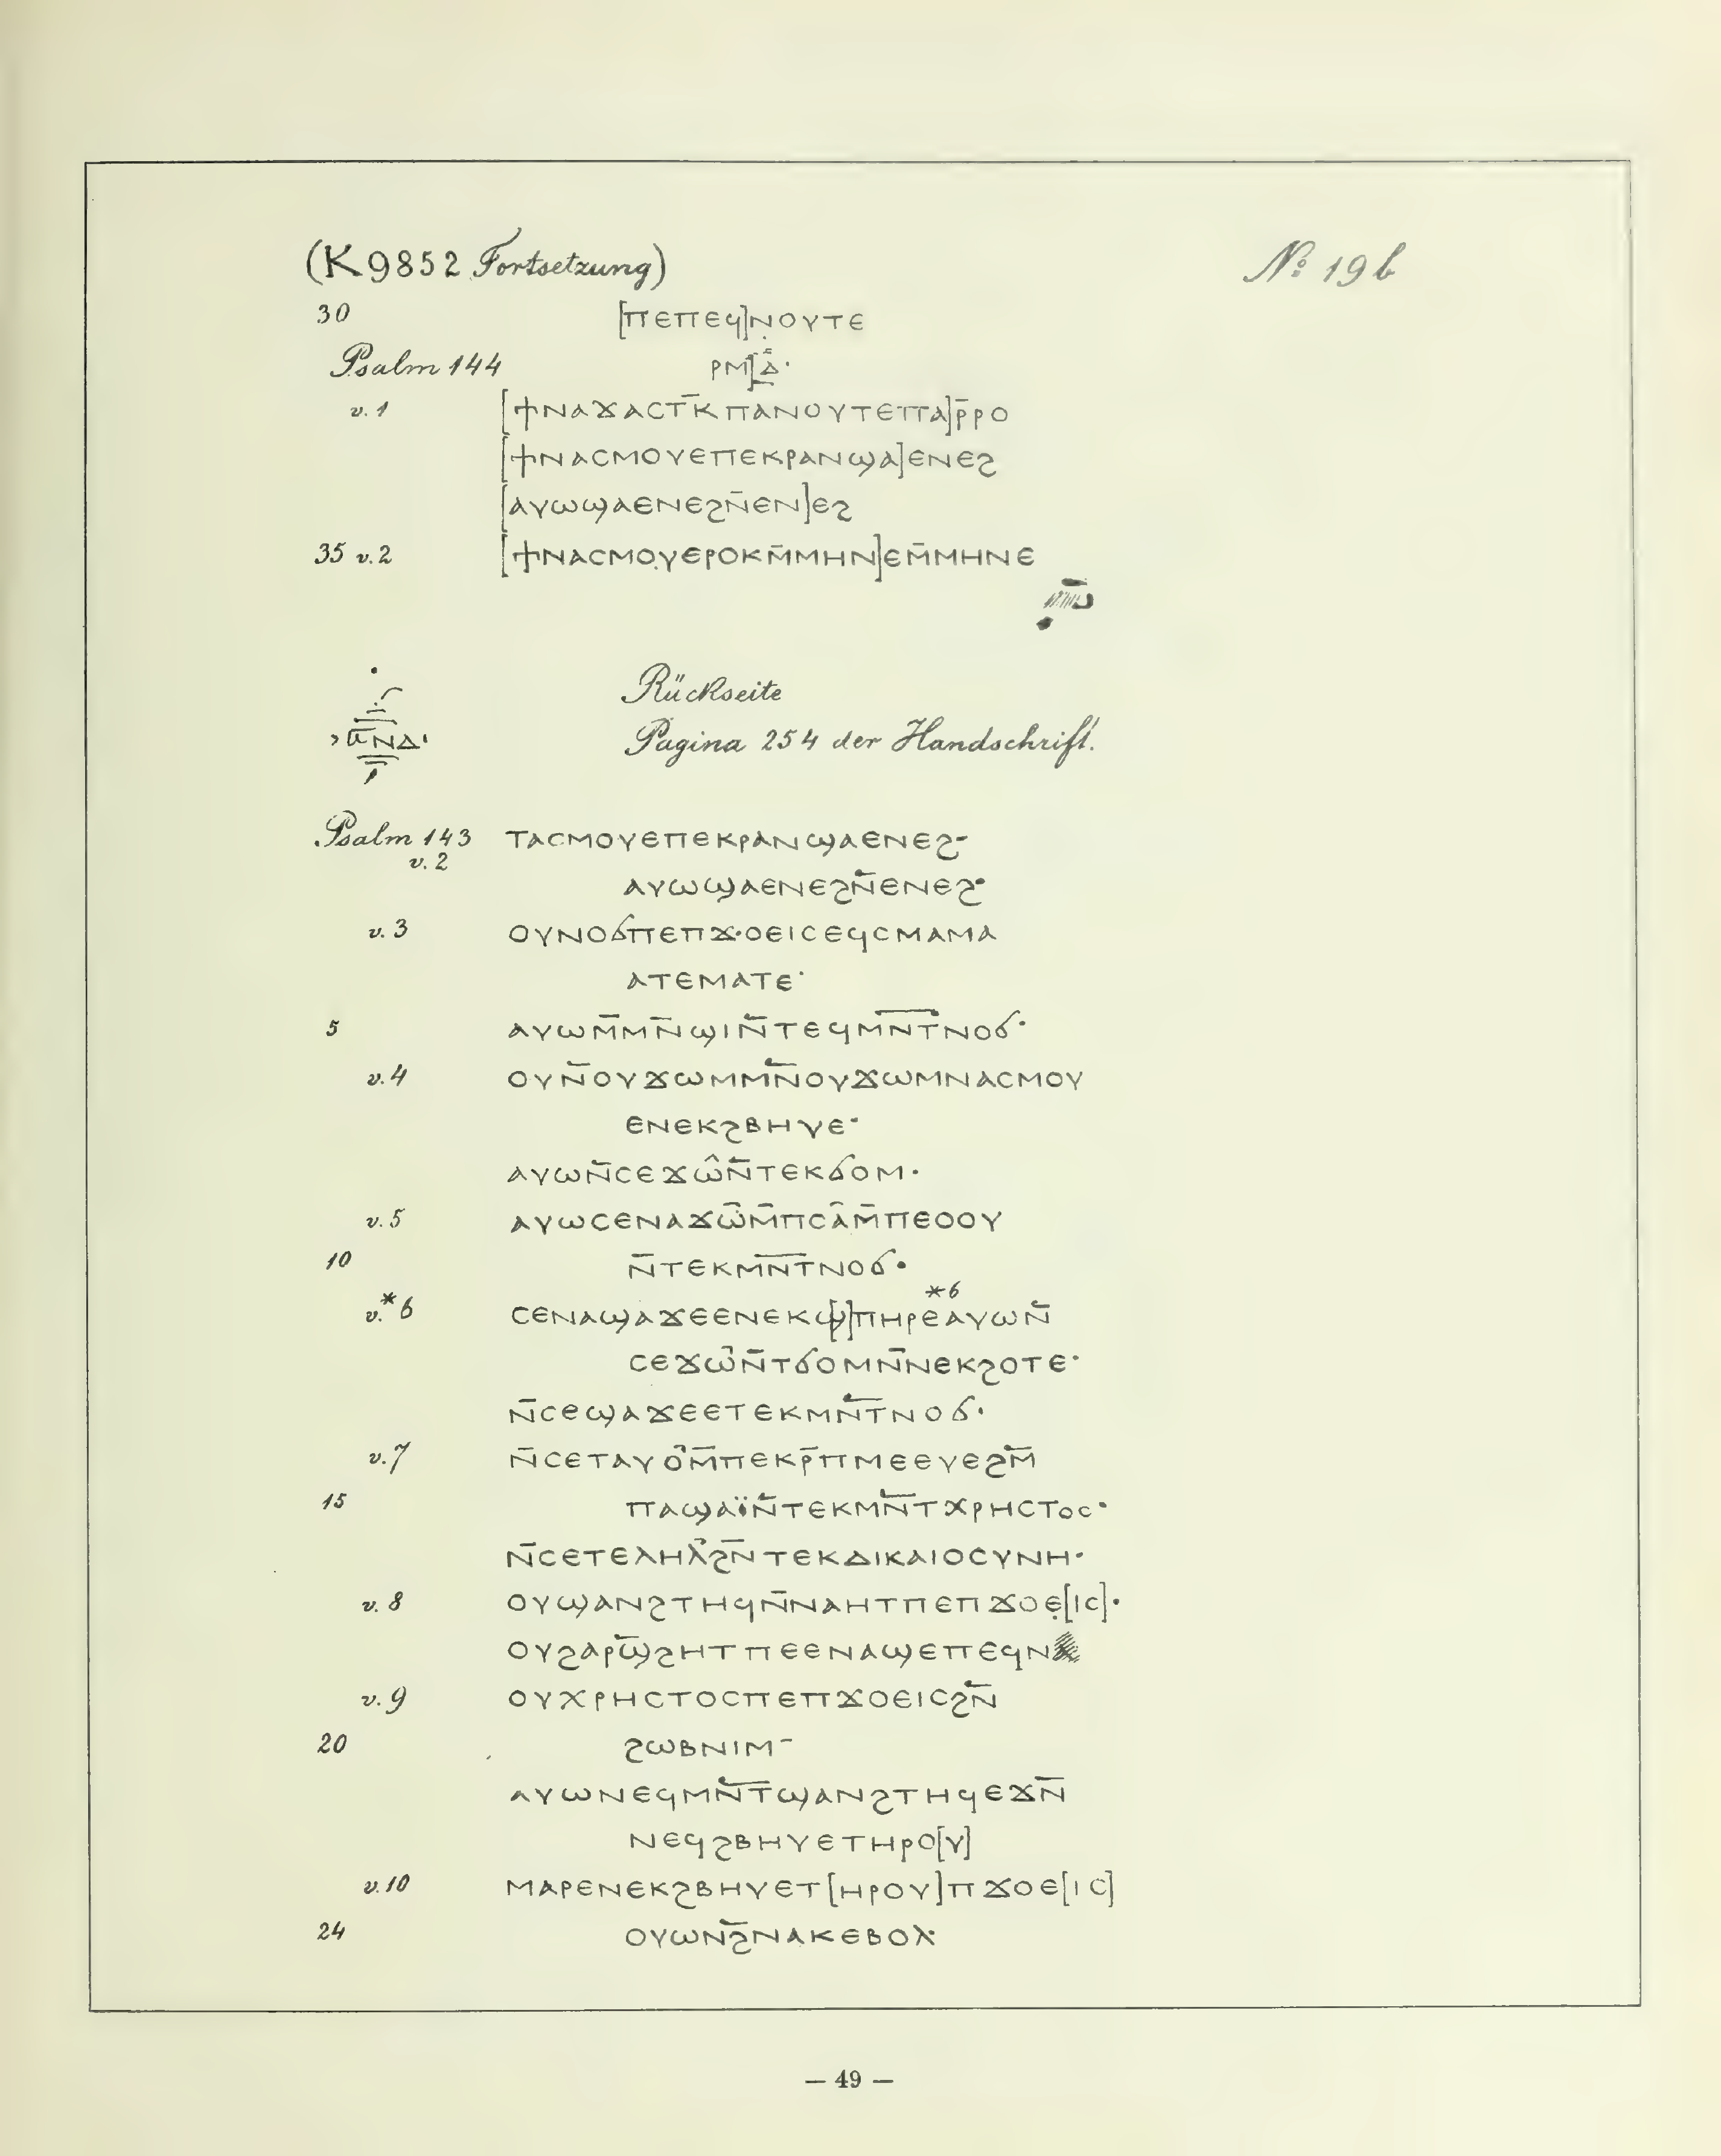 (K 9852 Fortsetzung) № 19 b
30 [ⲡⲉⲡⲉϥ]ⲛⲟⲩⲧⲉ
Psalm 144 ⲣⲙ[ⲇ̄·
v. 1 [ϯⲛⲁϫⲁⲥⲧ̄ⲕ̄ⲡⲁⲛⲟⲩⲧⲉⲡⲡⲁ]ⲣ̄ⲣⲟ
[ϯⲛⲁⲥⲙⲟⲩⲉⲡⲉⲕⲣⲁⲛϣⲁ]ⲉⲛⲉϩ
[ⲁⲩⲱϣⲁⲉⲛⲉϩⲛ̄ⲉⲛ]ⲉϩ
35 v. 2 [ϯⲛⲁⲥⲙⲟⲩⲉⲣⲟⲕⲙ̄ⲙⲏⲛ]ⲉⲙ̄ⲙⲏⲛⲉ
Rückseite
ⲥ̄ⲛⲇ Pagina 254 der Handschrift.
Psalm 143 ⲧⲁⲥⲙⲟⲩⲉⲡⲉⲕⲣⲁⲛϣⲁⲉⲛⲉϩ-
v. 2
ⲁⲩⲱϣⲁⲉⲛⲉϩⲛ̄ⲉⲛⲉϩ·
v. 3 ⲟⲩⲛⲟϭⲡⲉⲡϫ·ⲟⲉⲓⲥⲉϥⲥⲙⲁⲙⲁ
ⲁⲧⲉⲙⲁⲧⲉ·
5 ⲁⲩⲱⲙ̄ⲙⲛ̄ϣⲓⲛ̄ⲧⲉϥⲙⲛ̄ⲧ̄ⲛⲟϭ·
v. 4 ⲟⲩⲛ̄ⲟⲩϫⲱⲙⲙⲛ̄ⲟⲩϫⲱⲙⲛⲁⲥⲙⲟⲩ
ⲉⲛⲉⲕϩⲃⲏⲩⲉ·
ⲁⲩⲱⲛ̄ⲥⲉϫⲱ̂ⲛ̄ⲧⲉⲕϭⲟⲙ·
v. 5 ⲁⲩⲱⲥⲉⲛⲁϫⲱ̂ⲙ̄ⲡⲥⲁ̂ⲙ̄ⲡⲉⲟⲟⲩ
10 ⲛ̄ⲧⲉⲕⲙⲛ̄ⲧ̄ⲛⲟϭ·
*6
v.* 6 ⲥⲉⲛⲁϣⲁϫⲉⲉⲛⲉⲕ[ϣ]ⲡⲏⲣⲉⲁⲩⲱⲛ̄
ⲥⲉϫⲱ̂ⲛ̄ⲧϭⲟⲙⲛ̄ⲛⲉⲕϩⲟⲧⲉ·
ⲛ̄ⲥⲉϣⲁϫⲉⲉⲧⲉⲕⲙⲛ̄ⲧ̄ⲛⲟϭ·
v. 7 ⲛ̄ⲥⲉⲧⲁⲩⲟ̂ⲙ̄ⲡⲉⲕⲣ̄ⲡⲙⲉⲉⲩⲉϩⲙ̄
15 ⲡⲁϣⲁⲓ̈ⲛ̄ⲧⲉⲕⲙⲛ̄ⲧⲭⲣⲏⲥⲧⲟⲥ·
ⲛ̄ⲥⲉⲧⲉⲗⲏⲗ̂ϩⲛ̄ⲧⲉⲕⲇⲓⲕⲁⲓⲟⲥⲩⲛⲏ·
v. 8 ⲟⲩϣⲁⲛϩⲧⲏϥⲛ̄ⲛⲁⲏⲧⲡⲉⲡϫⲟⲉ̣[ⲓⲥ]·
ⲟⲩϩⲁⲣϣ̄ϩⲏⲧⲡⲉⲉⲛⲁϣⲉⲡⲉϥⲛ
v. 9 ⲟⲩⲭⲣⲏⲥⲧⲟⲥⲡⲉⲡϫⲟⲉⲓⲥϩⲛ̄
20 ϩⲱⲃⲛⲓⲙ-
ⲁⲩⲱⲛⲉϥⲙⲛ̄ⲧ̄ϣⲁⲛϩⲧⲏϥⲉϫⲛ̄
ⲛⲉϥϩⲃⲏⲩⲉⲧⲏⲣⲟ[ⲩ]
v. 10 ⲙⲁⲣⲉⲛⲉⲕϩⲃⲏⲩⲉⲧ[ⲏⲣⲟⲩ]ⲡϫⲟⲉ[ⲓⲥ]
24 ⲟⲩⲱⲛϩ̄ⲛⲁⲕⲉⲃⲟⲗ·
— 49 —